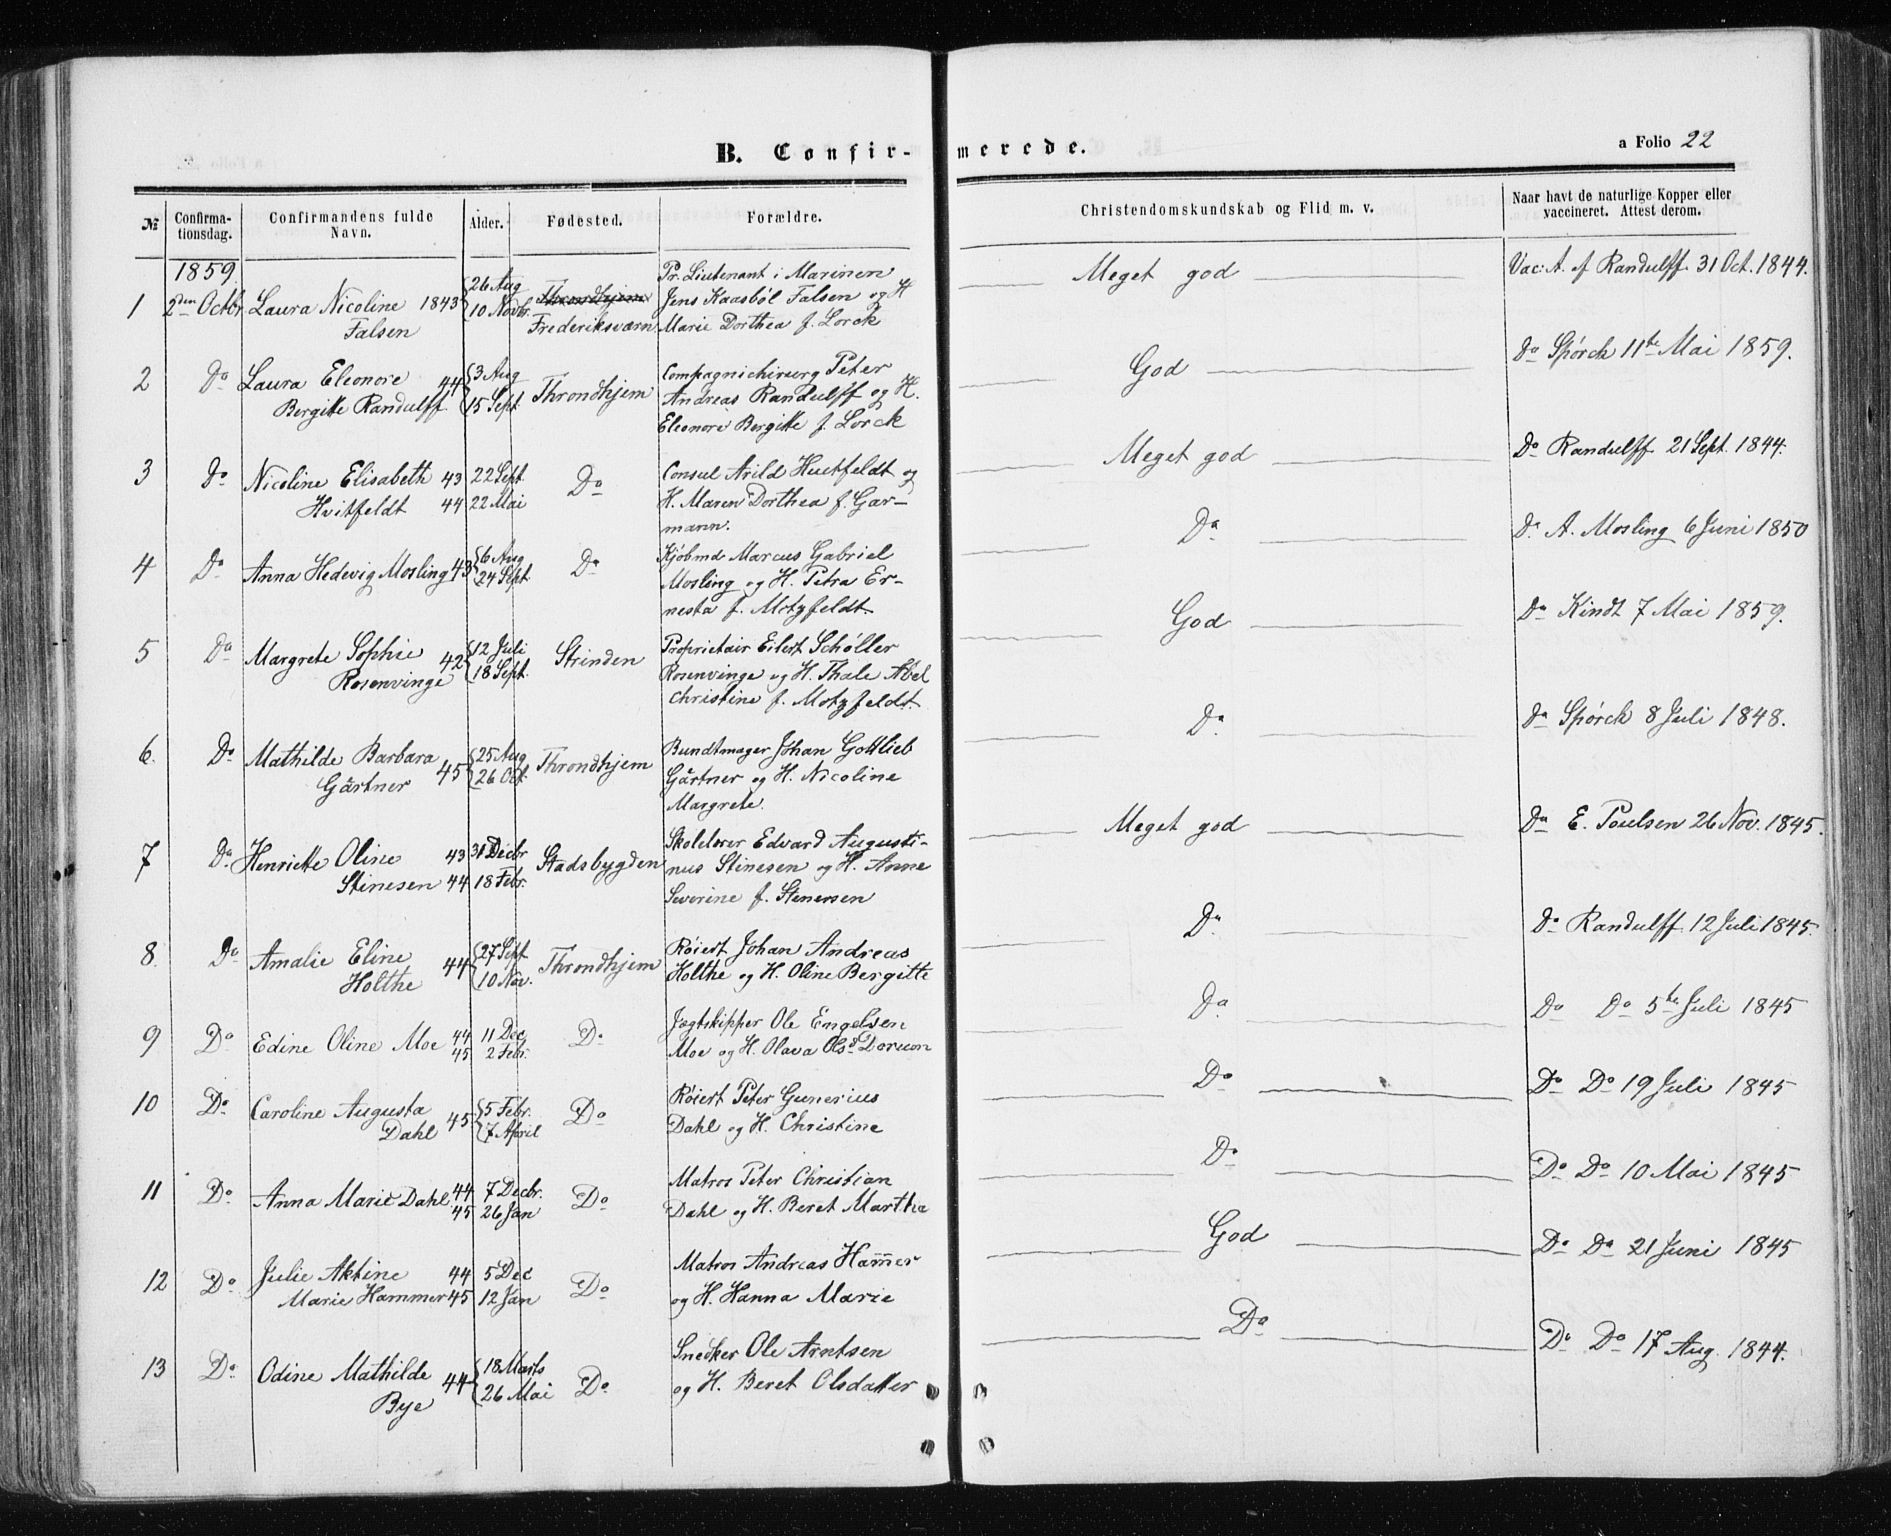 B. Confir-
merede.
a Folio 22
№
Confirma-
tionsdag.
Confirmandens fulde
Navn.
Alder.
Fødested.
Forældre.
Christendomskundskab og Flid m. v.
Naar havt de naturlige Kopper eller
vaccineret. Attest derom.
1859
1 2den Octbr Laura Nicoline 1843 26 Aug
Falsen 10 Novbr. Throndhjem
Frederiksværn
Pr. Lieutenant i Marinen
Jens Kaasbøl Falsen og H
Marie Dorthea f. Lorck
Meget god
Vac: A. af Randulff 31 Oct. 1844.
2 Do Laura Eleonore 44 3 Aug
Bergitte Randulff 15 Sept. Throndhjem
Compagnichirurg Peter
Andreas Randulff og H.
Eleonore Bergitte f. Lorck
God
Do Spørck 11te Mai 1859.
3 Do Nicoline Elisabeth 43 22 Sept
Hvitfeldt 44 22 Mai Do
Consul Arild Huitfeldt og
H. Maren Dorthea f. Gar-
mann.
Meget god
Do Randulff 21 Sept. 1844.
4 Do Anna Hedevig Mosling 43 6 Aug
24 Sept. Do
Kjøbmd Marcus Gabriel
Mosling og H. Petra Er-
nesta f. Motzfeldt.
Do
Do A. Mosling 6 Juni 1850
5 Do Margrete Sophie 42 12 Juli
Rosenvinge 18 Sept. Strinden
Proprietair Eilert Schøller
Rosenvinge og H. Thale Abel
Christine f. Motzfeldt.
God
Do Kindt 7 Mai 1859.
6. Do Mathilde Barbara 45 25 Aug
Gärtner 26 Oct. Throndhjem
Bundtmager Johan Gottlieb
Gärtner og H. Nicoline
Margrete.
Do
Do Spørck 8 Juli 1848.
7 Do Henriette Oline 43 31 Decbr
Stinesen 44 18 Febr. Stadsbygden
Skolelærer Edvard Augusti-
nus Stinesen og H. Anne
Severine f. Stenersen
Meget god
Do E. Poulsen 26 Nov. 1845.
8. Do Amalie Eline 44 27 Sept
Holthe 10 Nov. Throndhjem
Røiert Johan Andreas
Holthe og H. Oline Bergitte
Do
Do Randulff 12 Juli 1845.
9 Do Edine Oline Moe 44 11 Dec
45 2 Febr. Do
Jægtskipper Ole Engelsen
Moe og H. Olava Olsd
Do
Do Do 5te Juli 1845
10 Do Caroline Augusta 45 5 Febr.
Dahl 7 April Do
Røiert Peter Gunerius
Dahl og H. Christine
Do
Do Do 19 Juli 1845
11 Do Anna Marie Dahl 44 7 Decbr.
45 26 Jan Do
Matros Peter Christian
Dahl og H. Beret Martha
Do
Do Do 10 Mai 1845
12 Do Julie Aktine 44 5 Dec
Marie Hammer 45 12 Jan Do
Matros Andreas Ham̄er
og H. Hanna Marie
God
Do Do 21 Juni 1845
13 Do Odine Mathilde 44 18 Marts
Bye 26 Mai Do
Snedker Ole Arntsen
og H. Beret Olsdatter
Do
Do Do 17 Aug. 1844.